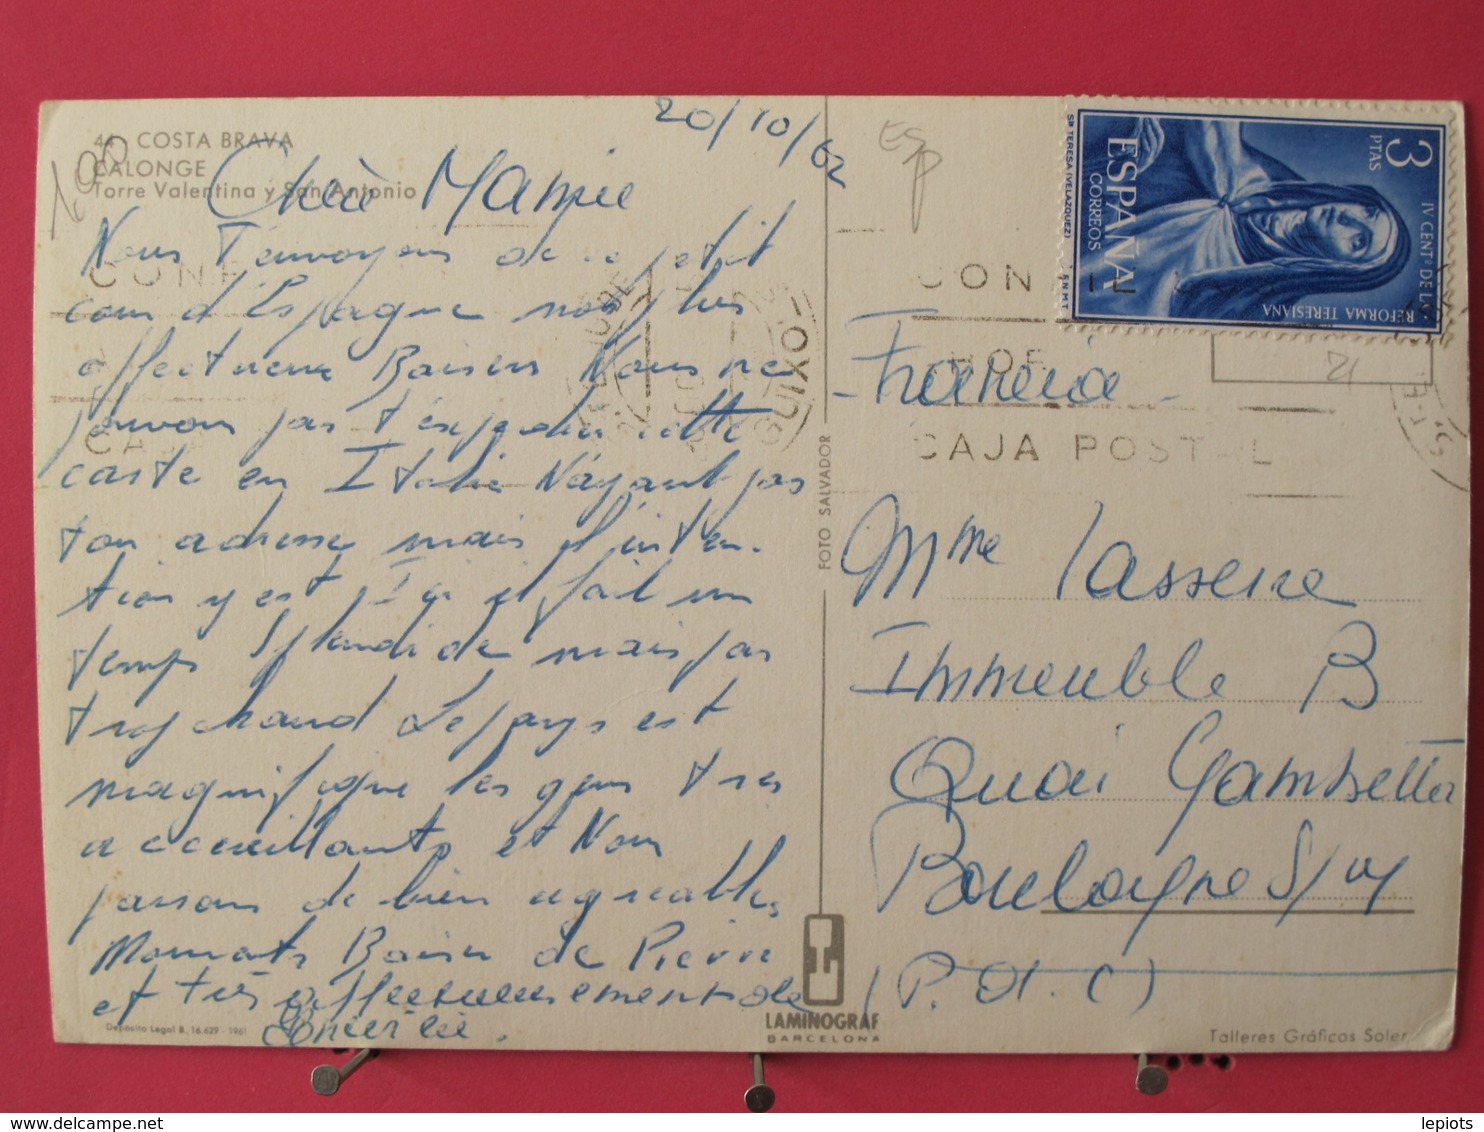 44 COSTA BRAVA
CALONGE
Torre Valentina y San Antonio
190
20/10/62
Esp
Chère Mamie
Nous T'envoyons de ce petit
coin d'Espagne nos plus
affectueux Baisers Nous ne
pouvons pas t'expedier cette
carte en Italie N'ayant pas
ton adresse mais l'inten-
tion y est Ici il fait un
temps Splendide mais pas
trop chaud Le pays est
magnifique les gens tres
accueillants et Nous
passons de bien agreables
Moments Baiser de Pierre
et très affectueusement de
Depósito Legal B. 16.629 - 1961
FOTO SALVADOR
LAMINOGRAF
BARCELONA
3
PTAS
ESPAÑA
CORREOS
STA TERESA (VELAZQUEZ)
F.N.M.T.
IV CENT. DE LA
REFORMA TERESIANA
CON
CAJA POSTAL
GUIXO
21
- Francia -
Mme Lassere
Immeuble B
Quai Gambetta
Boulogne S/my
(P. d. C)
Talleres Gráficos Soler
lepiots